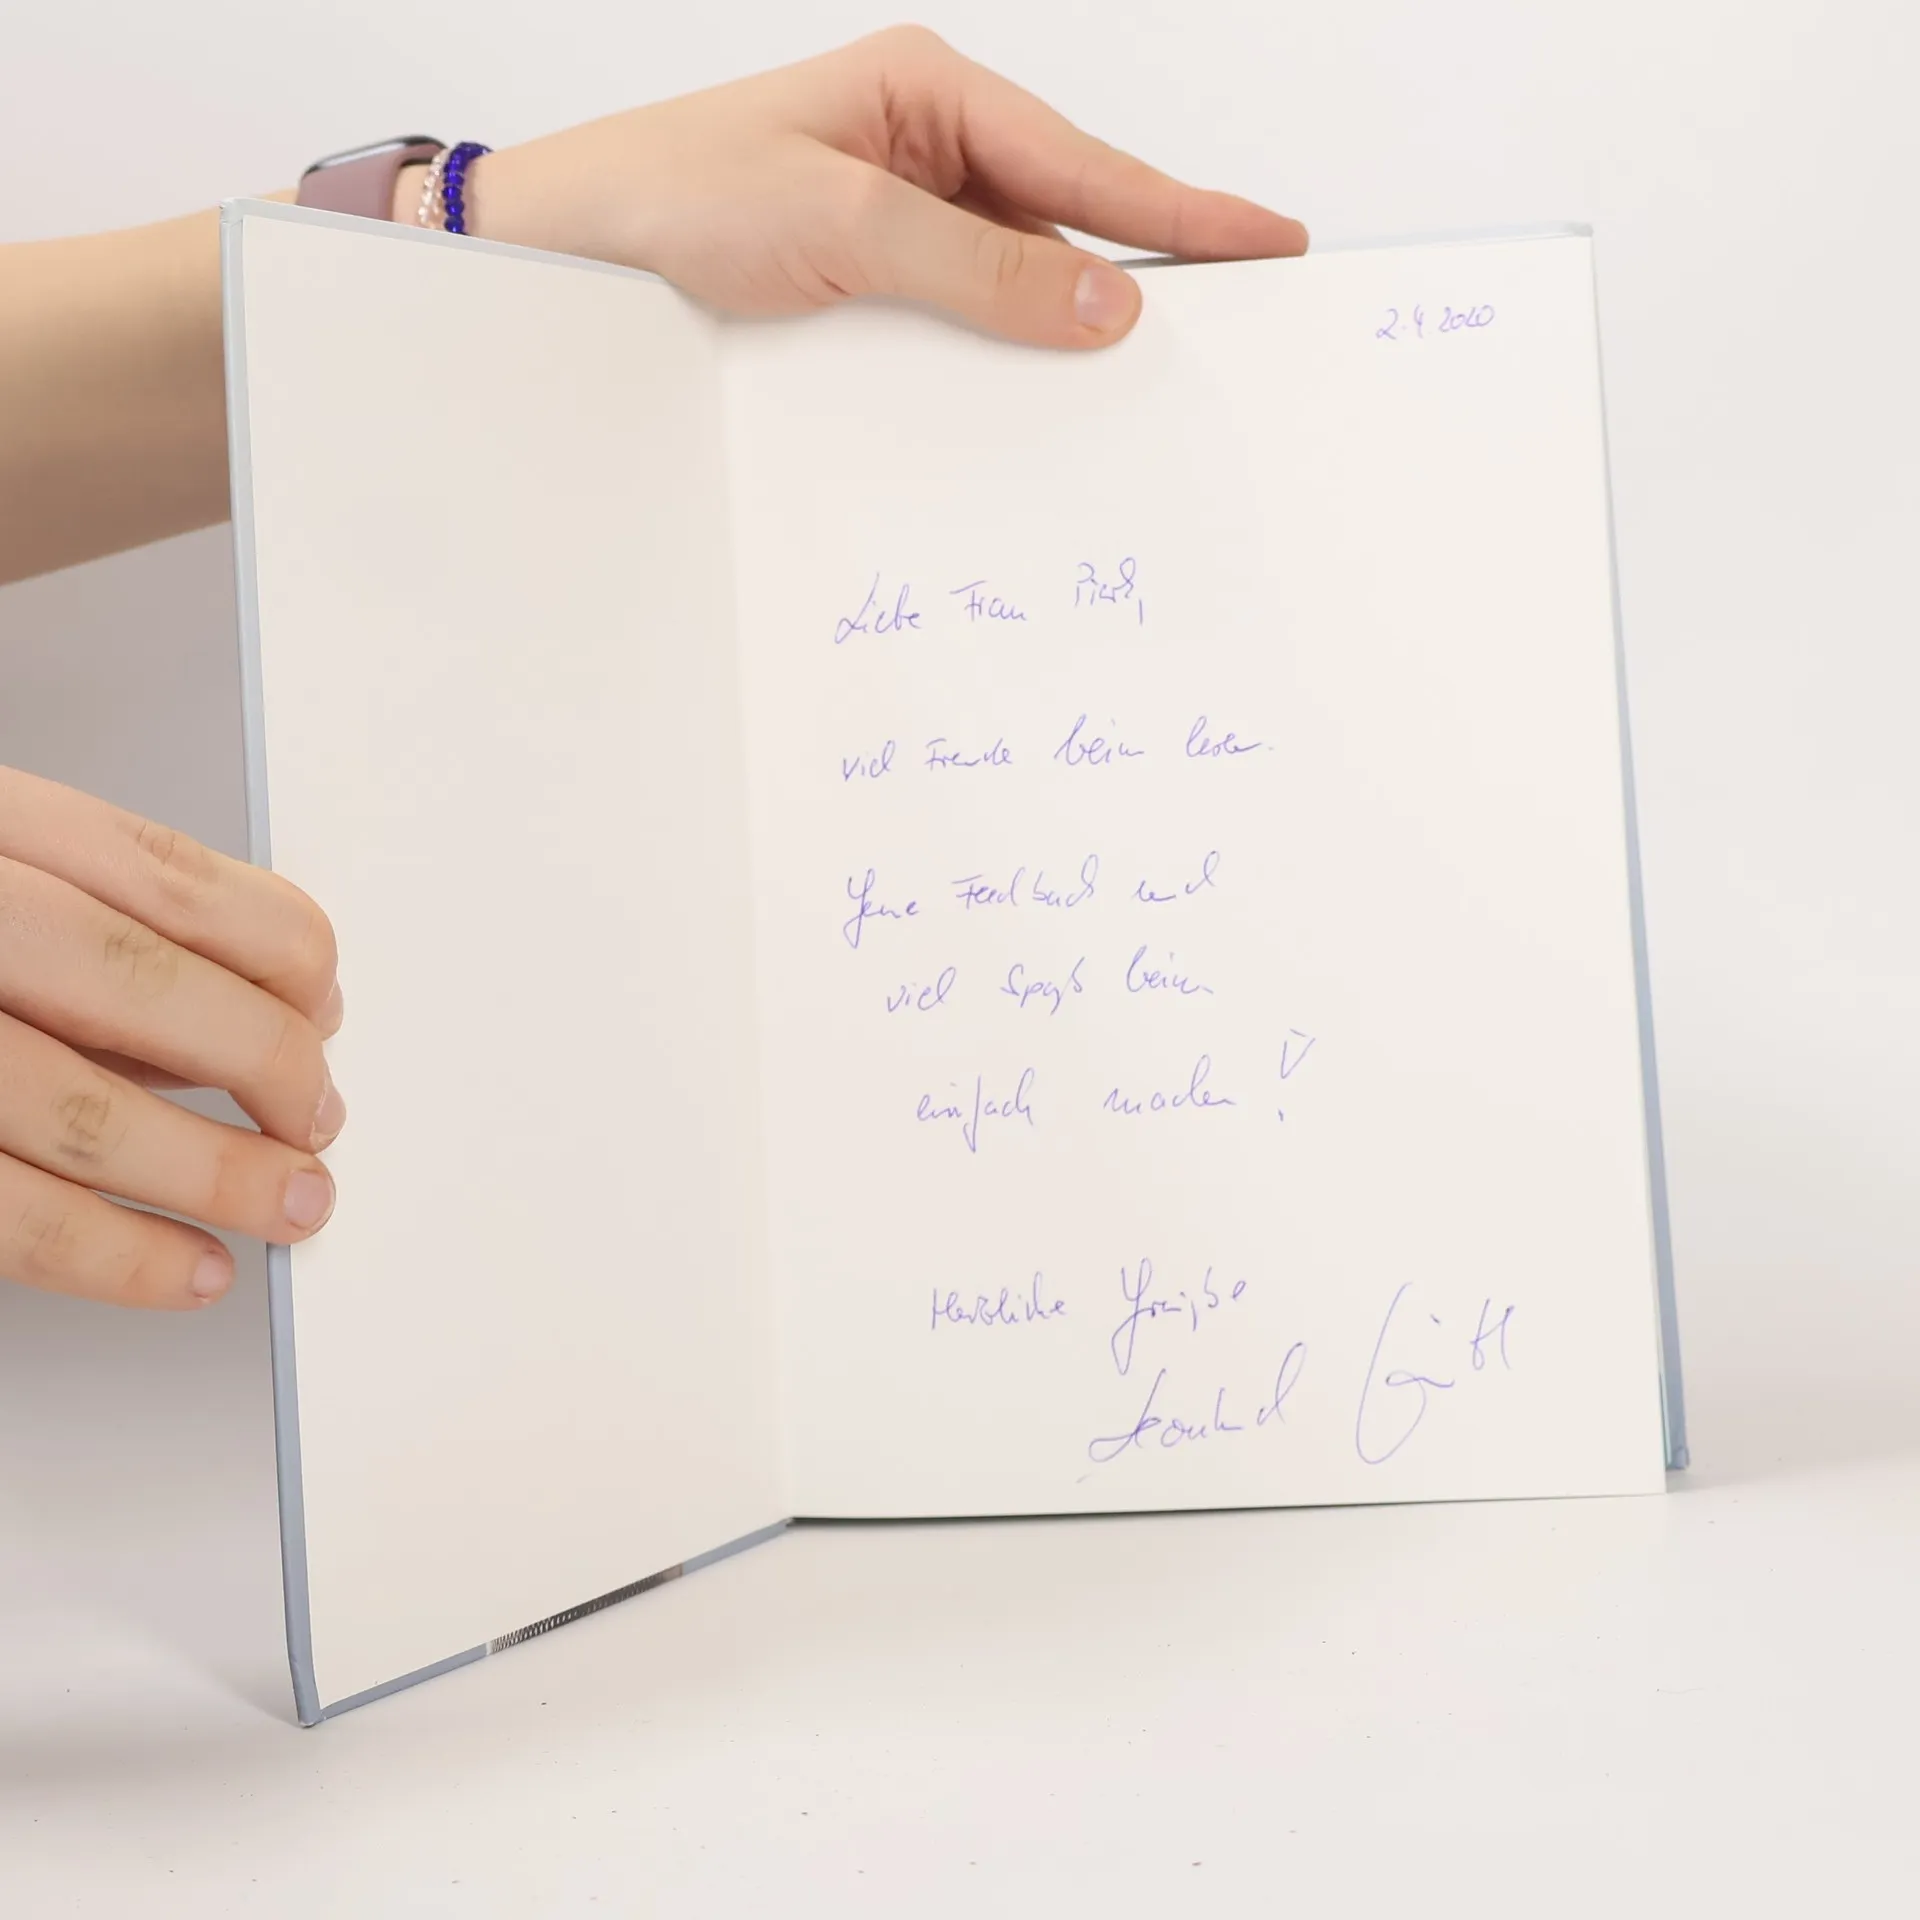 2.4.2020
Liebe Frau
viel Freude beim lesen.
Gerne Feedback und
viel Spaß beim
einfach machen!
Herzliche Grüße